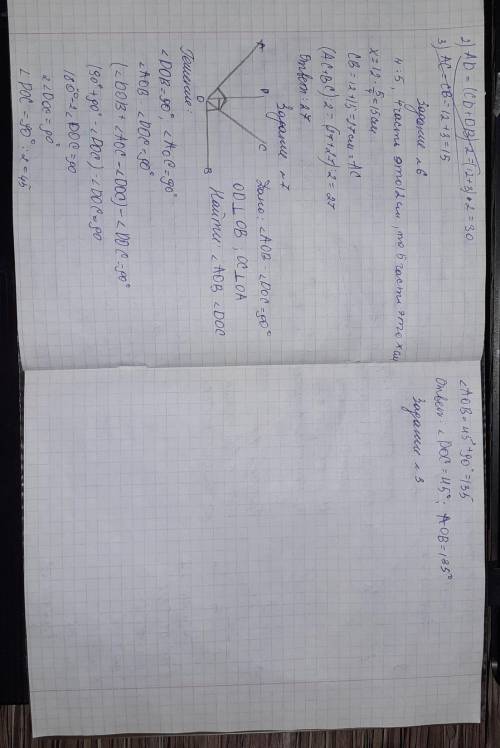 2) AD = (CD + DB) · 2 = (12+3) · 2 = 30
3) AC = CB = 12+3 = 15
Задание №6
4:5, 4 части это 12 см, то 5 части это x см
CB = 12+15 = 17 см = AC
(AC+BC) 2 = (17+17) 2 = 27
Ответ: 27
Задание №7
A
D
C
O
B
Дано: ∠AOB - ∠DOC = 90°
OD⊥OB, OC⊥OA
Найти: ∠AOB ∠DOC
Решение:
∠DOB = 90°, ∠AOC = 90°
∠AOB ∠DOC = 90°
(∠DOB + ∠AOC - ∠DOC) - ∠DOC = 90°
(90° + 90° ∠DOC) - ∠DOC = 90
180° - 2∠DOC = 90
2∠DOC = 90°
∠DOC = 90° : 2 = 45
∠AOB = 45° + 90° = 135
Ответ: ∠DOC = 45°; AOB = 135°
Задание №3